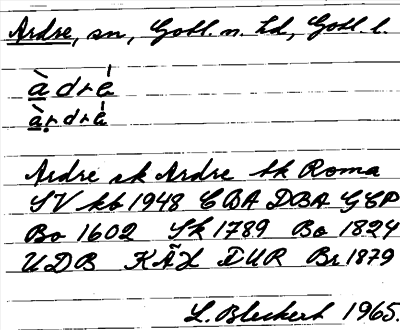 Ardre, sn, Gotl. n. hd, Gotl. l.
àdrè
àrdrè
Ardre sk Ardre tk Roma
SV kb 1948 CBA DBA GEP
Bo 1602 Sk 1789 Bo 1824
UDB KÄX DUR Br 1879
L. Bleckert 1965.